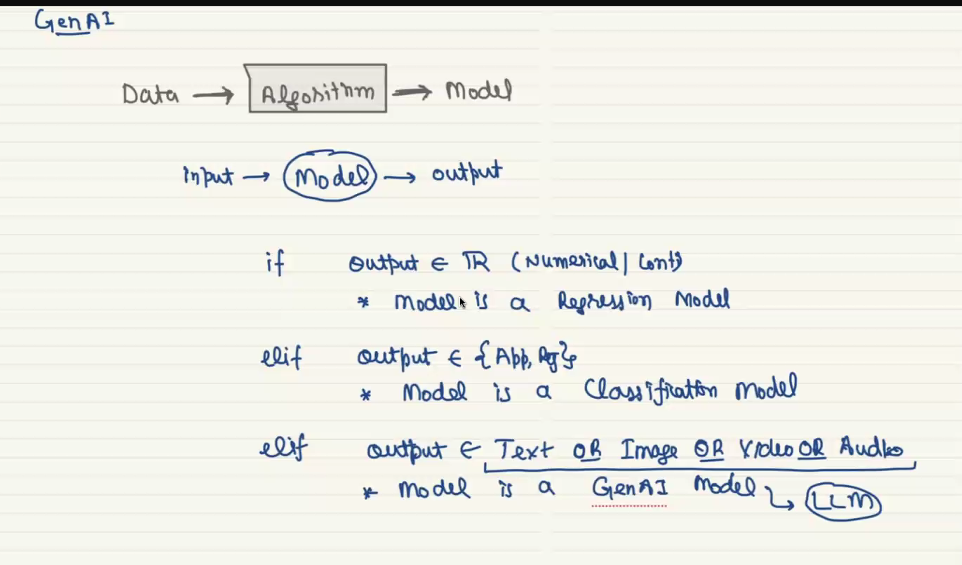 GenAI
Data → Algorithm → Model
input → Model → output
if output ∈ ℝ (Numerical | Cont)
* Model is a Regression Model
elif output ∈ {App, Rej}
* Model is a Classification Model
elif output ∈ Text OR Image OR Video OR Audio
* Model is a GenAI Model → LLM